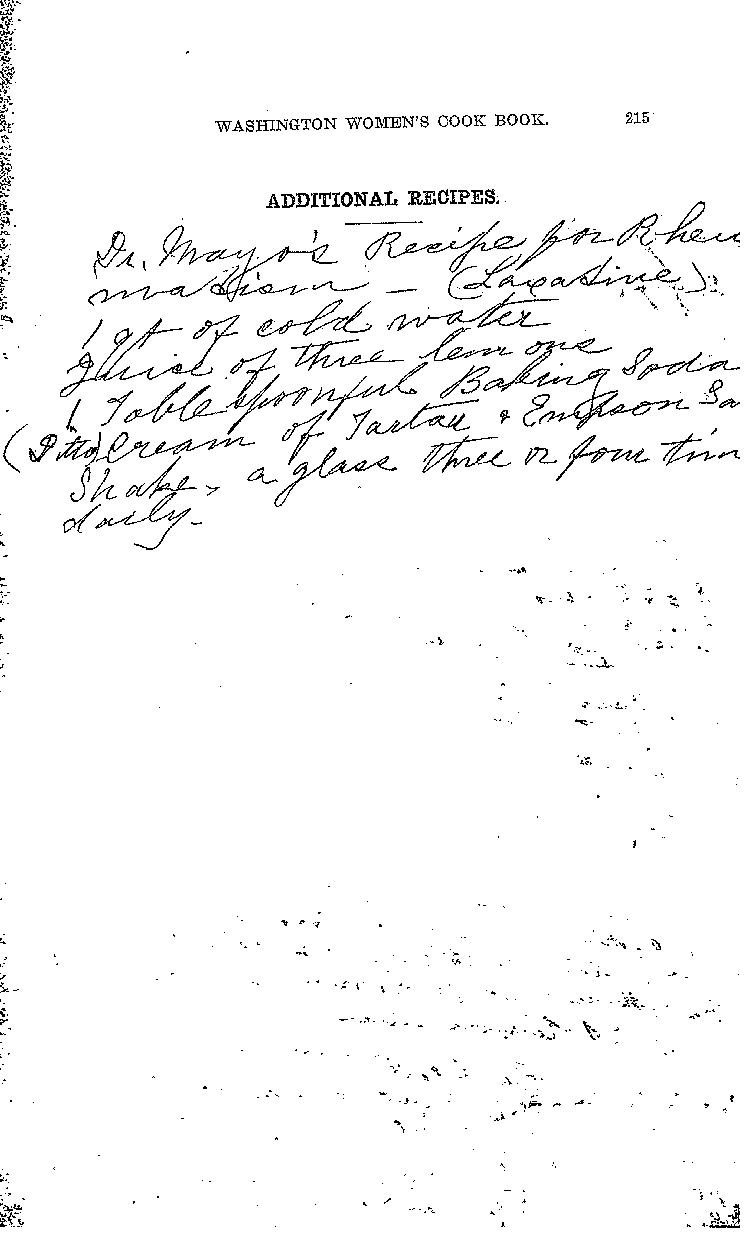 WASHINGTON WOMEN'S COOK BOOK. 215
ADDITIONAL RECIPES.
Dr. Mayo's Recipe for Rheu
matism - (Laxative)
1 qt of cold water
Juice of three lemons
1 Tablespoonful Baking Soda
(Ditto) Cream of Tartar & Empson Sa
Shake, a glass three or four tim
daily.